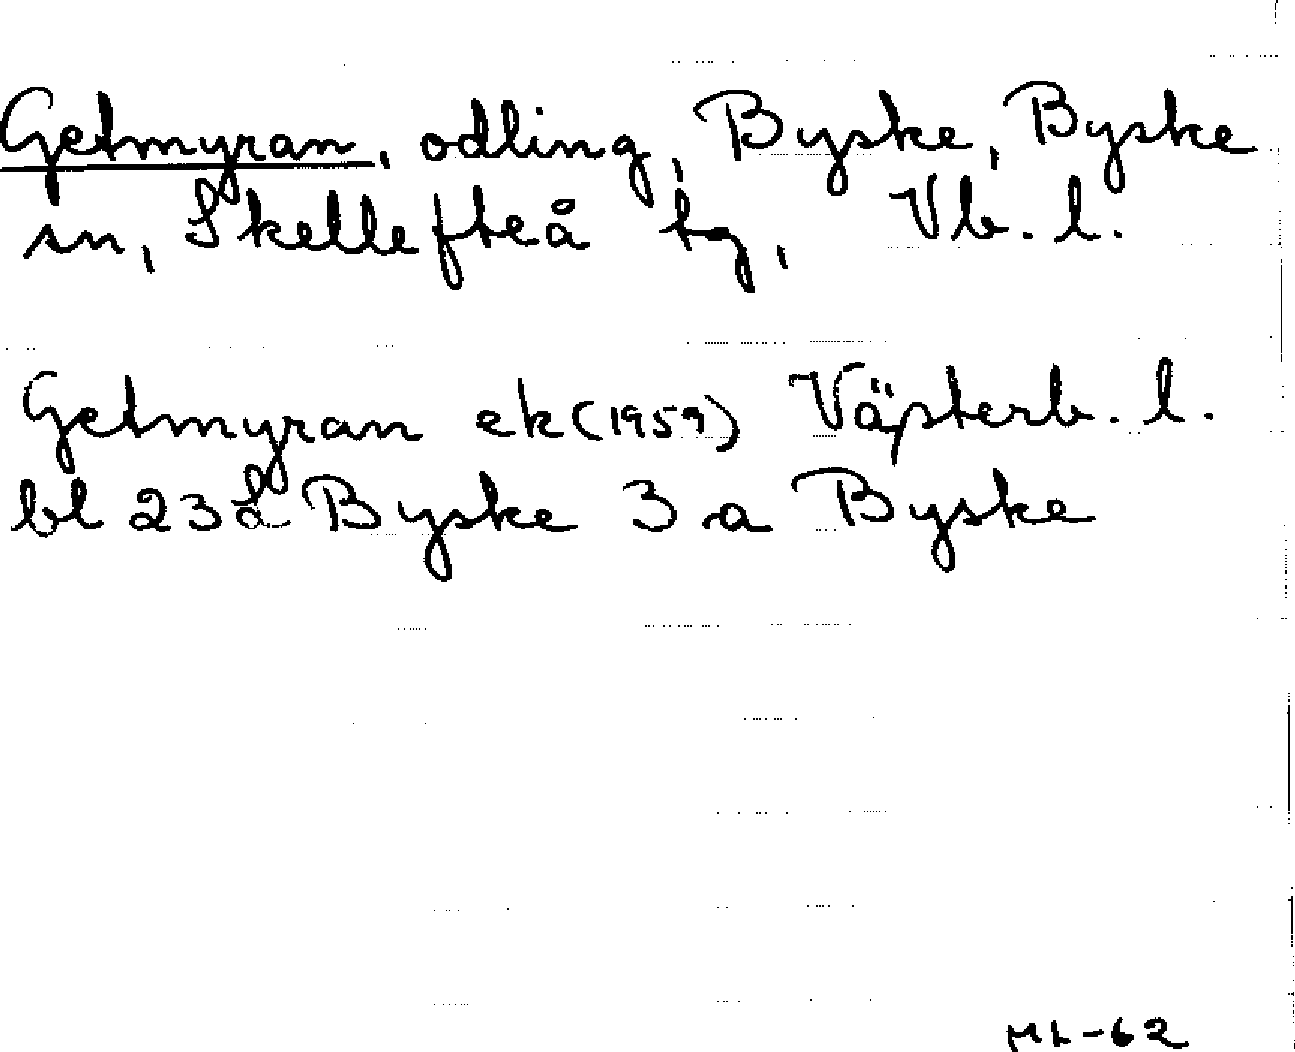 Getmyran, odling, Byske, Byske
sn, Skellefteå tg, Vb. l.
Getmyran ek (1959) Västerb. l.
bl 23 L Byske 3 a Byske
ML-62